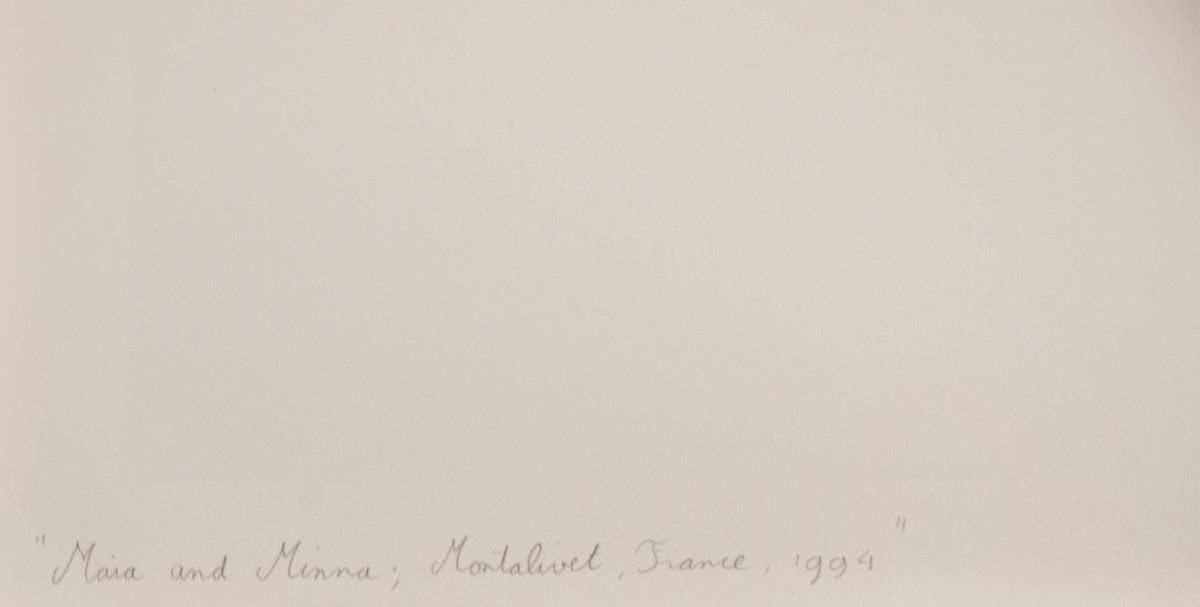 "Maia and Minna; Montalivet, France, 1994"